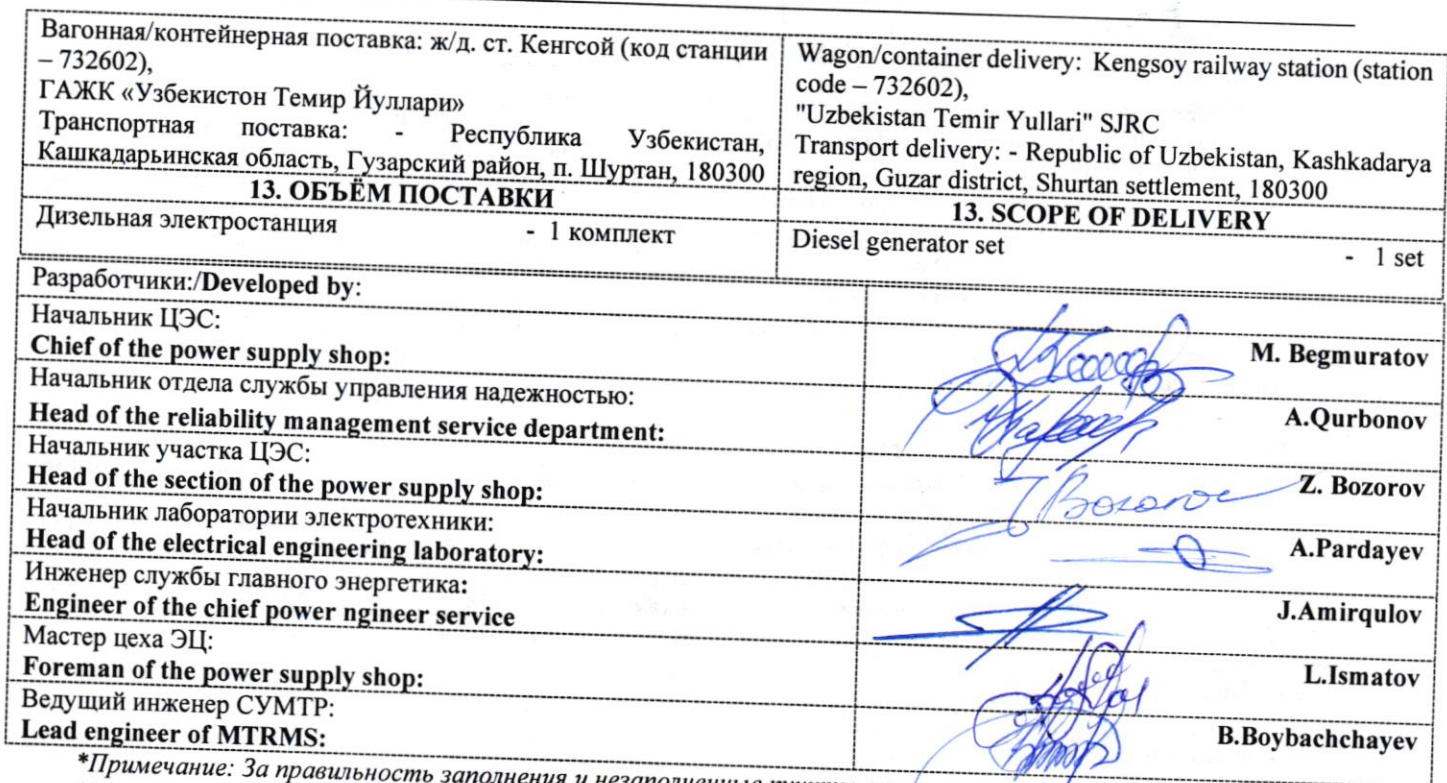 Вагонная/контейнерная поставка: ж/д. ст. Кенгсой (код станции
– 732602),
ГАЖК «Узбекистон Темир Йуллари»
Транспортная поставка: - Республика Узбекистан,
Кашкадарьинская область, Гузарский район, п. Шуртан, 180300
Wagon/container delivery: Kengsoy railway station (station
code – 732602),
"Uzbekistan Temir Yullari" SJRC
Transport delivery: - Republic of Uzbekistan, Kashkadarya
region, Guzar district, Shurtan settlement, 180300
13. ОБЪЁМ ПОСТАВКИ
13. SCOPE OF DELIVERY
Дизельная электростанция - 1 комплект
Diesel generator set - 1 set
Разработчики:/Developed by:
Начальник ЦЭС:
Chief of the power supply shop:
M. Begmuratov
Начальник отдела службы управления надежностью:
Head of the reliability management service department:
A.Qurbonov
Начальник участка ЦЭС:
Head of the section of the power supply shop:
Z. Bozorov
Начальник лаборатории электротехники:
Head of the electrical engineering laboratory:
A.Pardayev
Инженер службы главного энергетика:
Engineer of the chief power ngineer service
J.Amirqulov
Мастер цеха ЭЦ:
Foreman of the power supply shop:
L.Ismatov
Ведущий инженер СУМТР:
Lead engineer of MTRMS:
B.Boybachchayev
*Примечание: За правильность заполнения и незаполненные